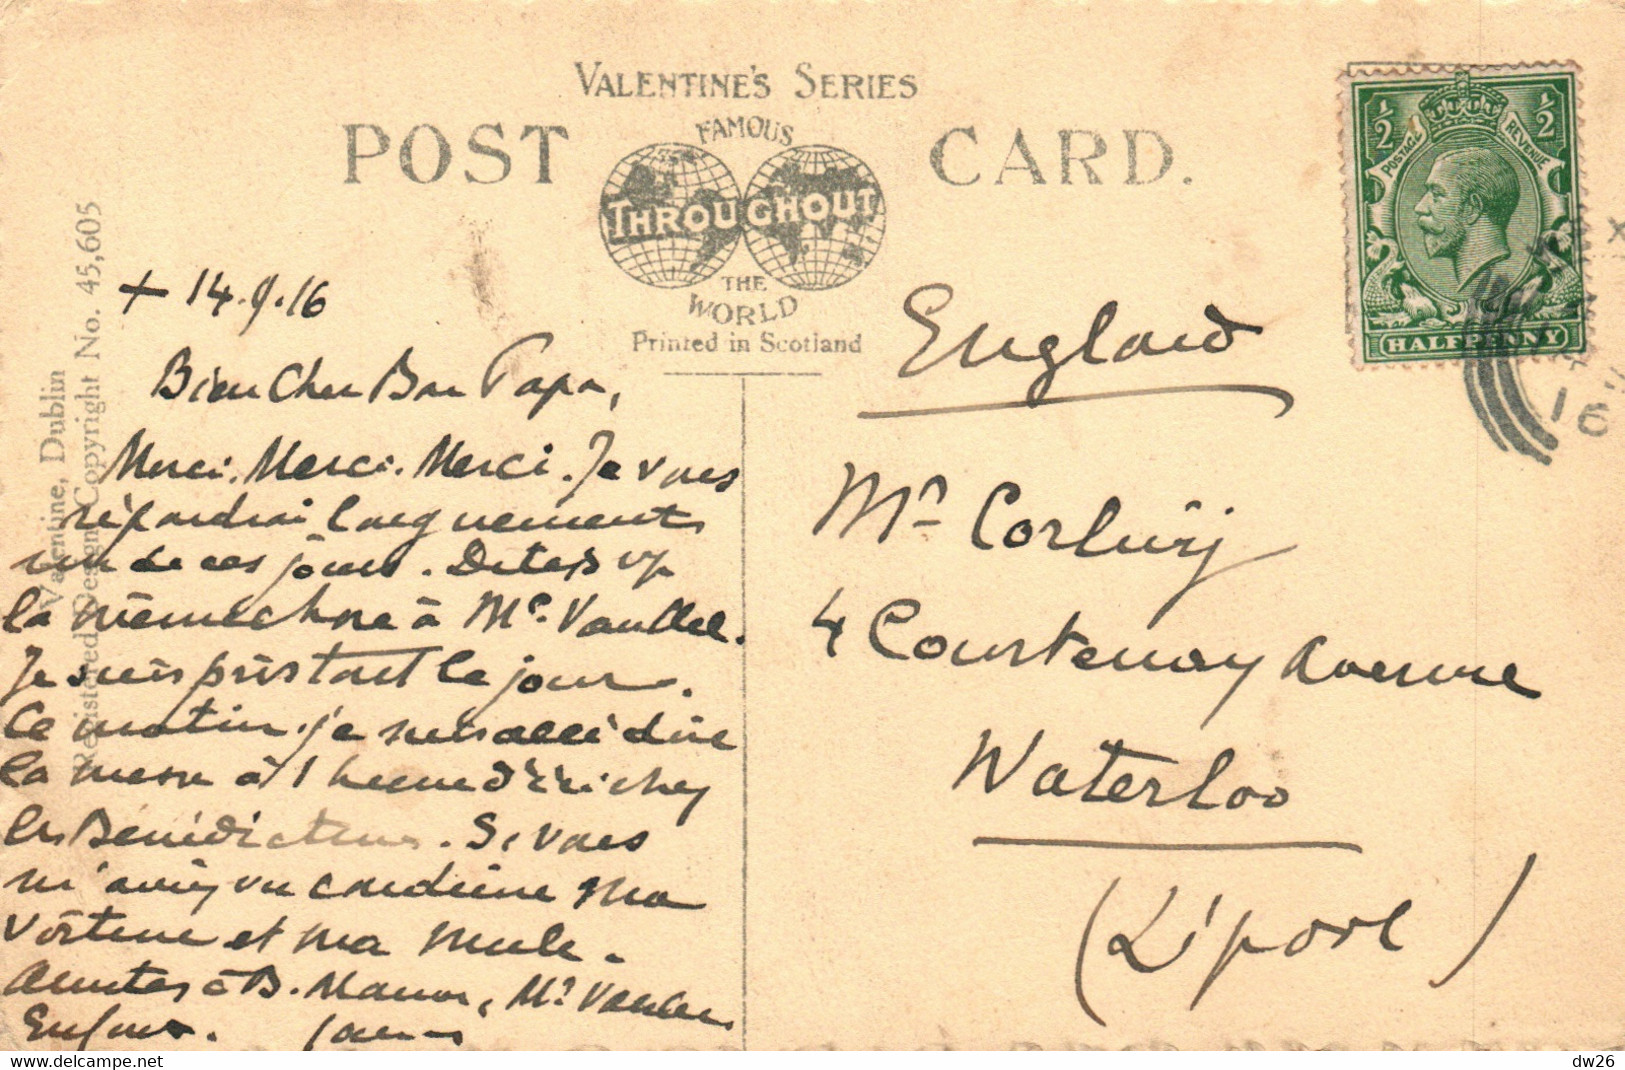 VALENTINE'S SERIES
POST CARD.
FAMOUS
THROUGHOUT
THE
WORLD
Printed in Scotland
Valentine, Dublin
Registered Design Copyright No. 45,605
½ ½
POSTAGE REVENUE
HALFPENNY
16
+ 14.9.16
Bien Cher Bon Papa,
Merci. Merci. Merci. Je vous
répondrai longuement
un de ces jours. Dites
la même chose à Mr.
Je suis pris tout le jour.
Ce matin je suis allé dire
la messe à 1 heure d'ici chez
les Bénédictines. Si vous
m'aviez vu conduire ma
voiture et ma mule.
à B. Maman, Mr
Enfants.
England
Mr
4 Courtenay Avenue
Waterloo
(L'pool)
dw26